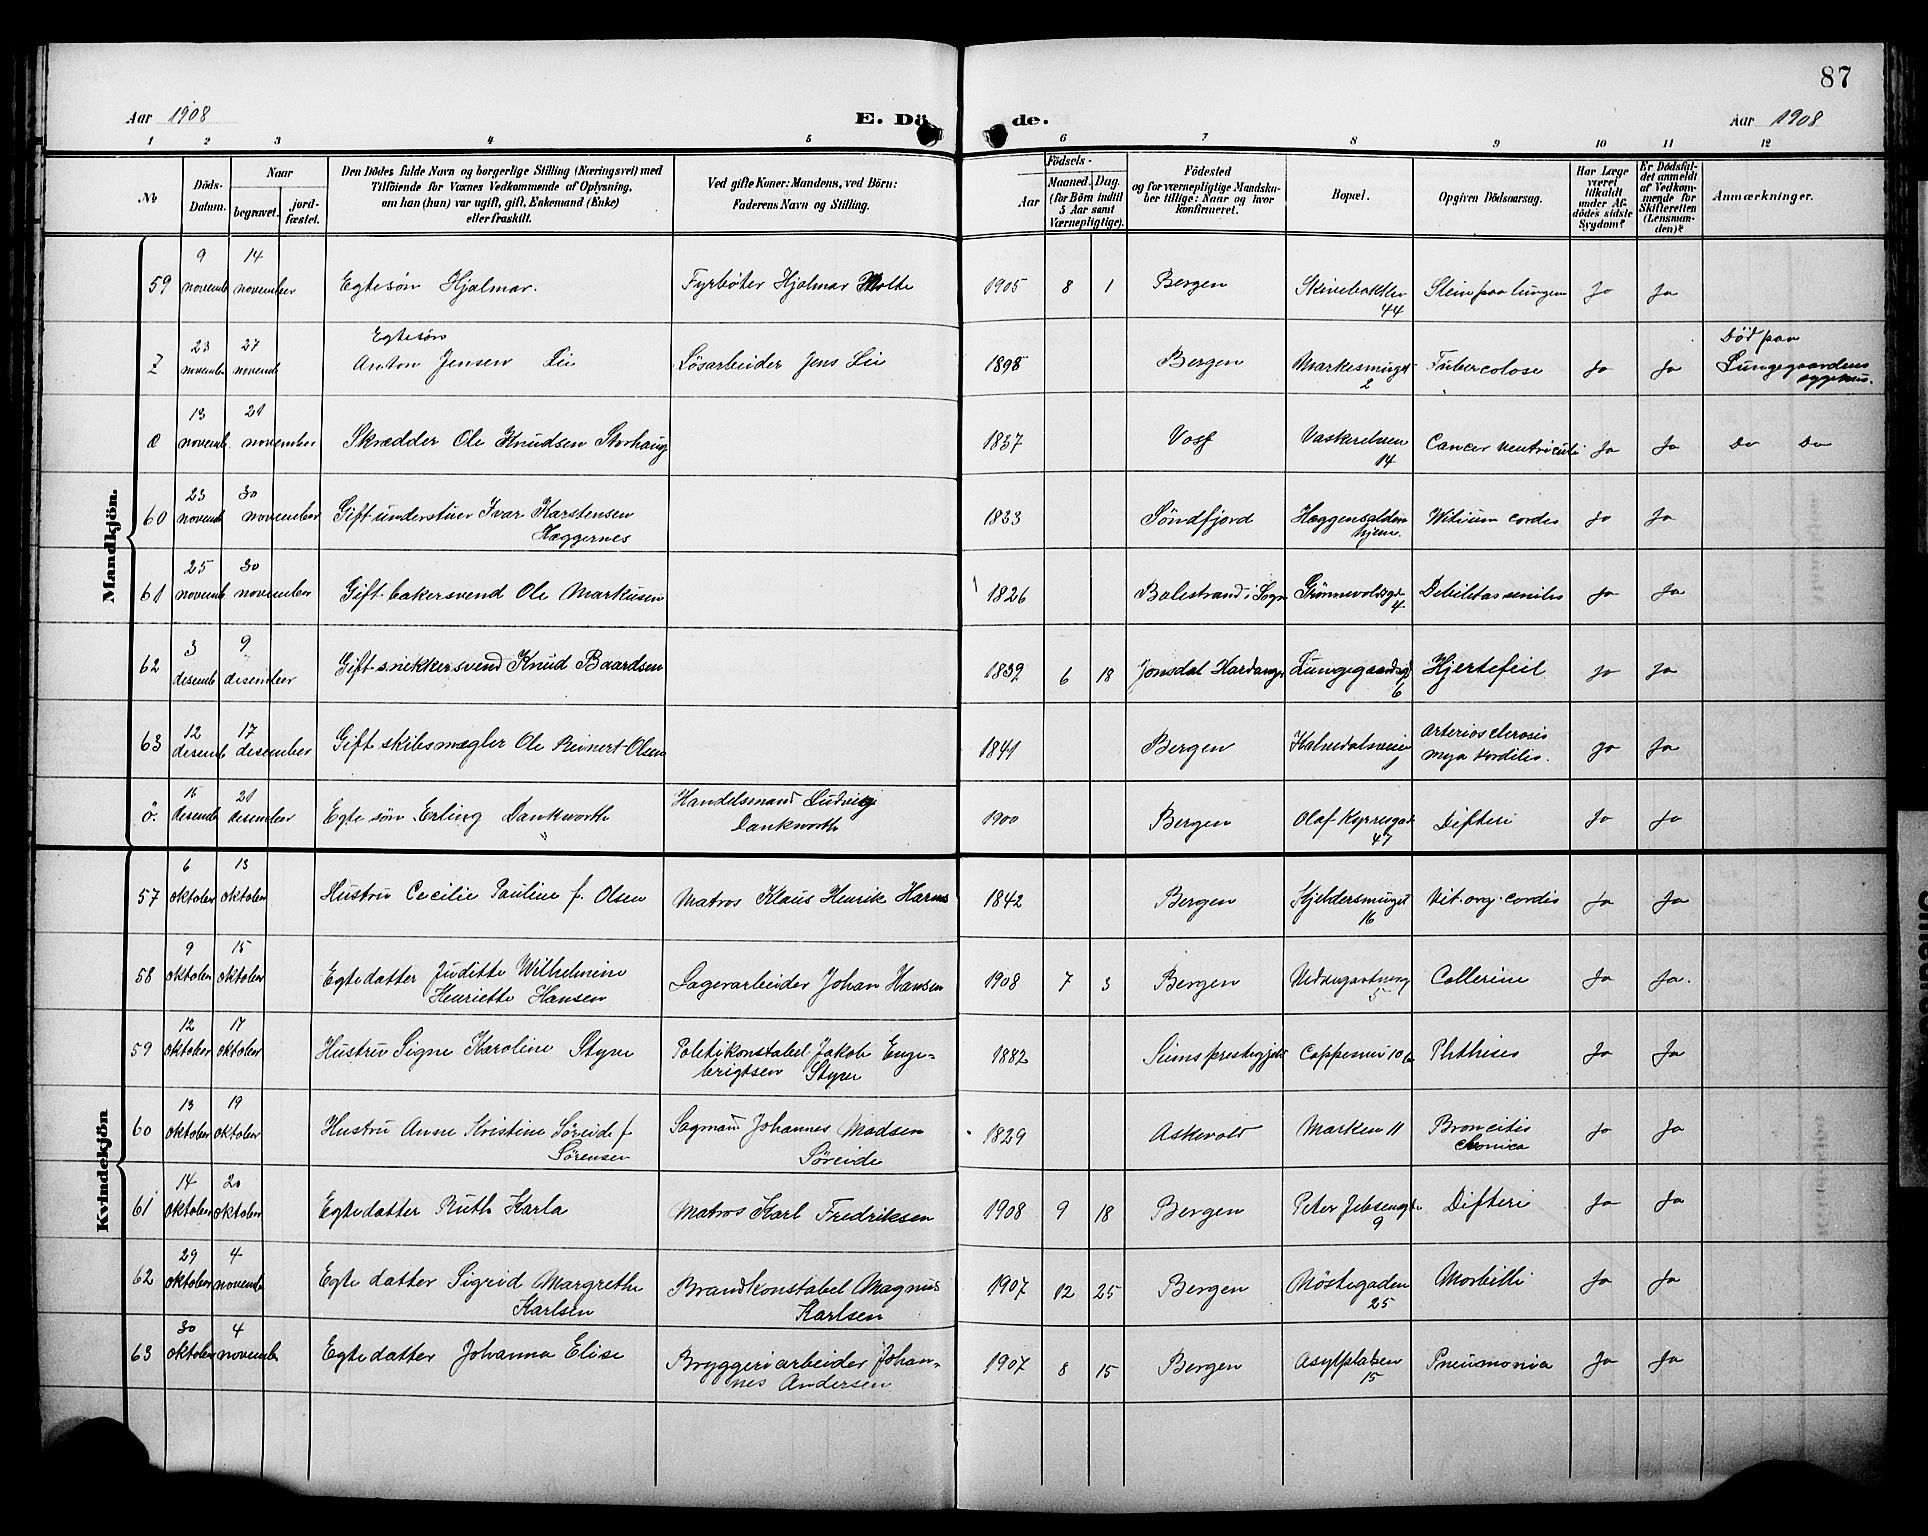 87
Aar 1908 E. Dö de. Aar 1908
1 2 3 4 5 6 7 8 9 10 11 12
No Döds-Datum. Naar begravet. jordfæstet. Den Dödes fulde Navn og borgerlige Stilling (Næringsvei) med Tilföiende for Voxnes Vedkommende af Oplysning, om han (hun) var ugift, gift, Enkemand (Enke) eller fraskilt. Ved gifte Koner: Mandens, ved Börn: Faderens Navn og Stilling. Födsels- Aar Maaned. Dag. (for Börn indtil 5 Aar samt Værnepligtige). Födested og for værnepligtige Mandskaber tillige: Naar og hvor konfirmeret. Bopæl. Opgiven Dödsaarsag. Har Læge været tilkaldt under Afdödes sidste Sygdom? Er Dödsfaldet anmeldt af Vedkommende for Skifteretten (Lensmanden)? Anmærkninger.
Mandkjön.
59 9 novemb 14 november Egtesøn Hjalmar. Fyrbøter Hjalmar Molde 1905 8 1 Bergen Stenebakken 44 Stein paa lungen Ja Ja
Z 23 novemb 27 novemb Egtesøn Anton Jensen Lie Løsarbeider Jens Lie 1898 Bergen Markesmuget 2 Tubercolose Ja Ja Død paa Lungegaardens sygehus.
Æ 13 novemb. 21 november Skrædder Ole Knudsen Storhaug 1837 Voss Vaskerelven 14 Cancer ventriculi Ja Ja Do Do
60 23 novemb 30 november Gift understuer Ivar Karstensen Hæggernes 1833 Søndfjord Hæggensalderhjem. Witium cordis Ja Ja
61 25 novemb 30 november Gift bakersvend Ole Markusen 1826 Balestrand i Sogn Grønnevoldsgd 4 Debilitas senilis Ja Ja
62 3 desemb 9 desember Gift snekkersvend Knud Baardsen 1839 6 18 Jonsdal Hardanger Lungegaardsgd 6 Hjertefeil Ja Ja
63 12 desemb 17 desember Gift skibsmægler Ole Reinert Olsen 1841 Bergen Kalvedalsveien 1 Arteriosclerosis myo korditis. Ja Ja
Ö. 15 desemb 21 desember Egte søn Erling Dankworth Handelsmand Ludvig Dankworth 1900 Bergen Olaf Kyrresgad 47 Difteri Ja Ja
Kvindekjön
57 6 oktober 13 oktober Hustru Cecilie Pauline f. Olsen Matros Klaus Henrik Harms 1842 Bergen Kjeldersmuget 16 Vit. org. cordis Ja Ja
58 9 oktober 15 oktober Egtedatter Juditte Wilhelmine Henriette Hansen Lagerarbeider Johan Hansen 1908 7 3 Bergen 5 Collerine Ja Ja.
59 12 oktober 17 oktober Hustru Signe Karoline Styve Politikonstabel Jakob Engebrigtsen Styve 1882 Cappesmu 10 Phthisis Ja Ja
60 13 oktober 19 oktober Hustru Anne Kristine Søreide f Sørensen Sagmand Johannes Madsen Søreide 1829 Askevold Marken 11 Broncitis chronica Ja Ja
61 14 oktober 20 oktober Egtedatter Ruth Karla Matros Karl Fredriksen 1908 9 18 Bergen Peter Jebsensgt. 9 Difteri Ja Ja
62 29 oktober 4 novemb Egte datter Sigrid Margrethe Karlsen Brandkonstabel Magnus Karlsen 1907 12 25 Bergen Nøstegaden 25 Morbilli Ja Ja
63 30 oktober 4 novemb Egtedatter Johanna Elise Bryggeriarbeider Johannes Andersen 1907 8 15 Bergen Asylpladsen 15 Pneumonia Ja Ja